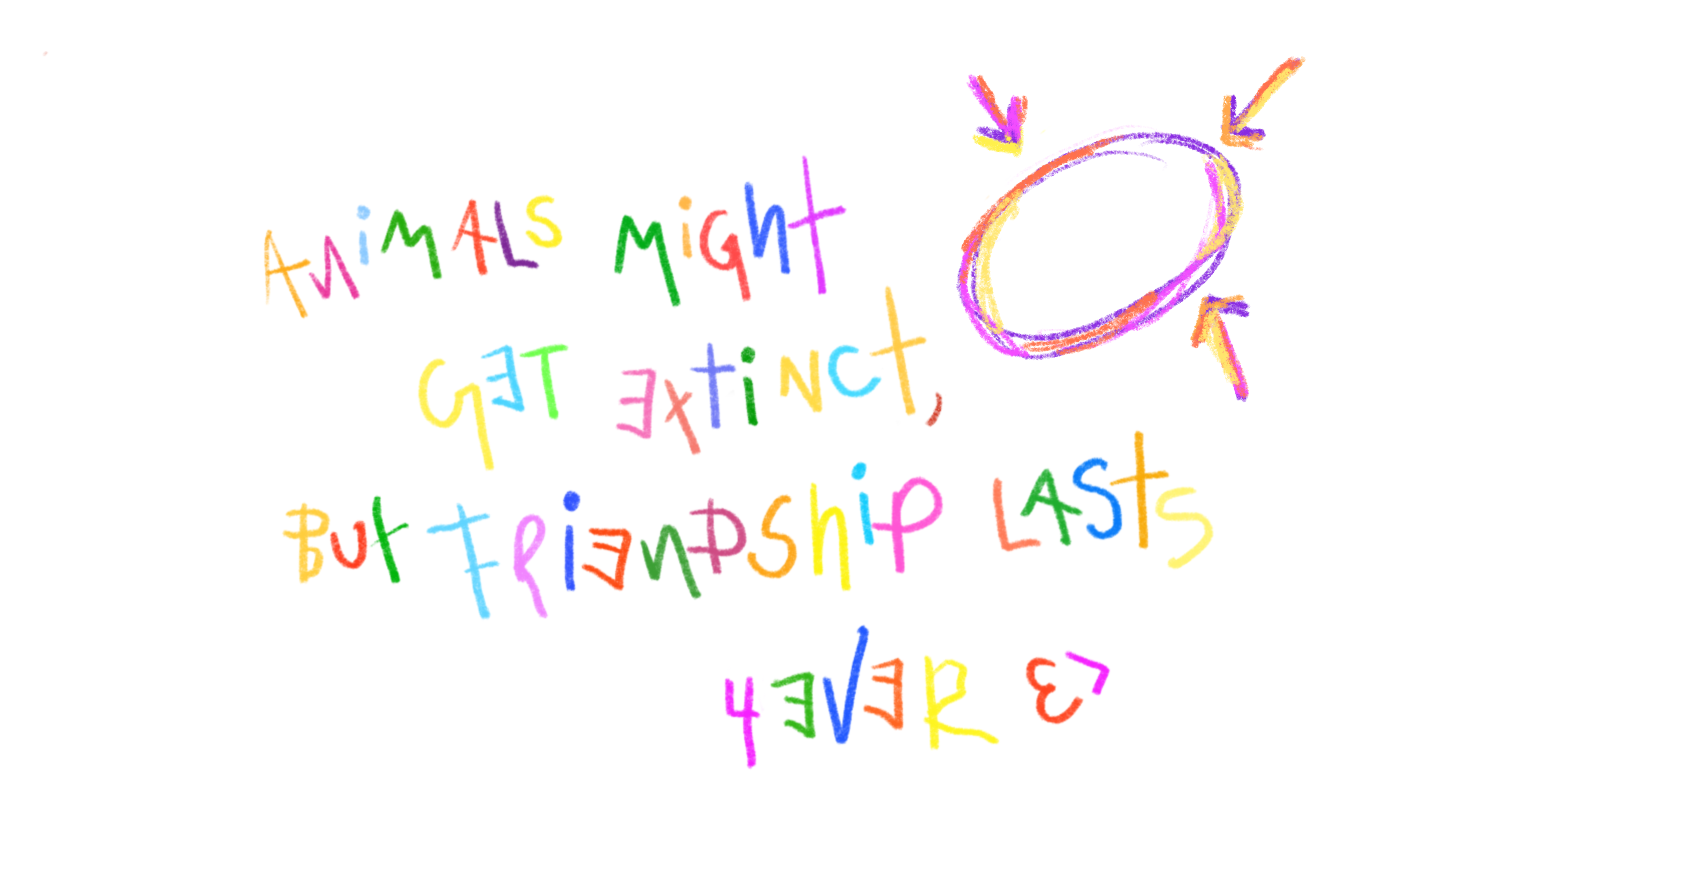 ANiMALS MiGht
GET EXtiNCt,
But FRiEnDShiP LASts
4EVER ε>